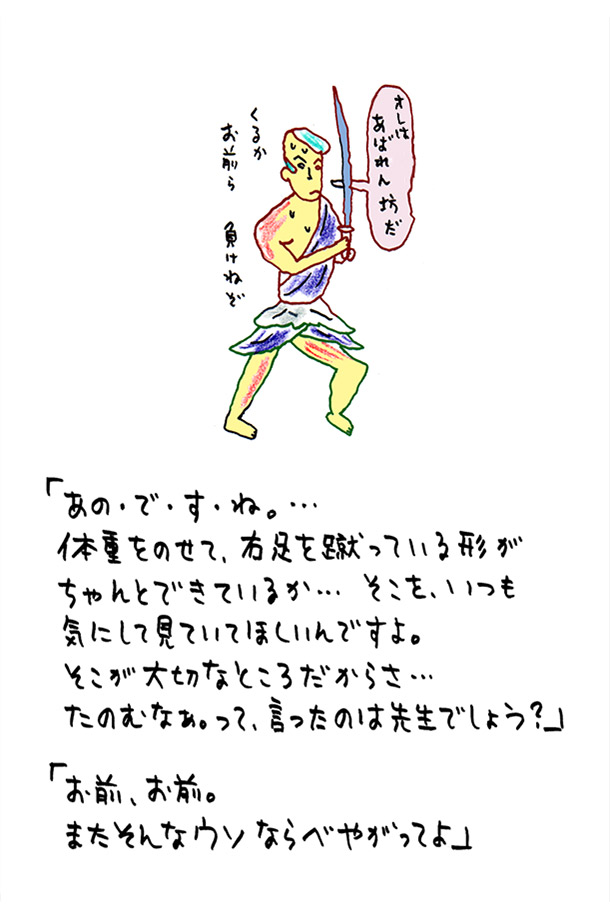 オレは
あばれん坊だ
くるか
お前ら
負けねぞ
「あの・で・す・ね。…
体重をのせて、右足を蹴っている形が
ちゃんとできているか… そこを、いつも
気にして見ていてほしいんですよ。
そこが大切なところだからさ…
たのむなぁ。って、言ったのは先生でしょう?」
「お前、お前。
またそんなウソならべやがってよ」